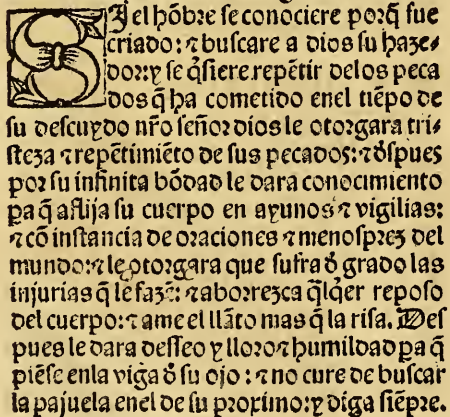 SJ el hõbre se conociere porq̃ fue
criado: ⁊ buscare a dios su haze-
dor: y se q̃siere repẽtir delos peca
dos q̃ ha cometido enel tiẽpo de
su descuydo nr̃o señor dios le otorgara tri-
steza ⁊ repẽtimiẽto de sus pecados: ⁊ dspues
por su infinita bõdad le dara conocimiento
pa q̃ aflija su cuerpo en ayunos ⁊ vigilias:
⁊ cõ instancia de oraciones ⁊ menosprez del
mundo: ⁊ le otorgara que sufra d̃ grado las
injurias q̃ le fazẽ: ⁊ aborrezca q̃lq̃er reposo
del cuerpo: ⁊ ame el llãto mas q̃ la risa. Des
pues le dara desseo y lloro ⁊ humildad pa q̃
piẽse enla viga d̃ su ojo: ⁊ no cure de buscar
la pajuela enel de su proximo: y diga siẽpre.